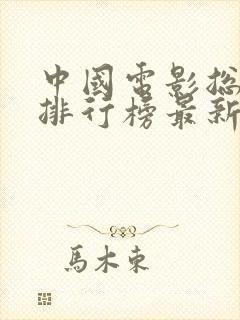 中國電影總
排行榜最新
馬木東